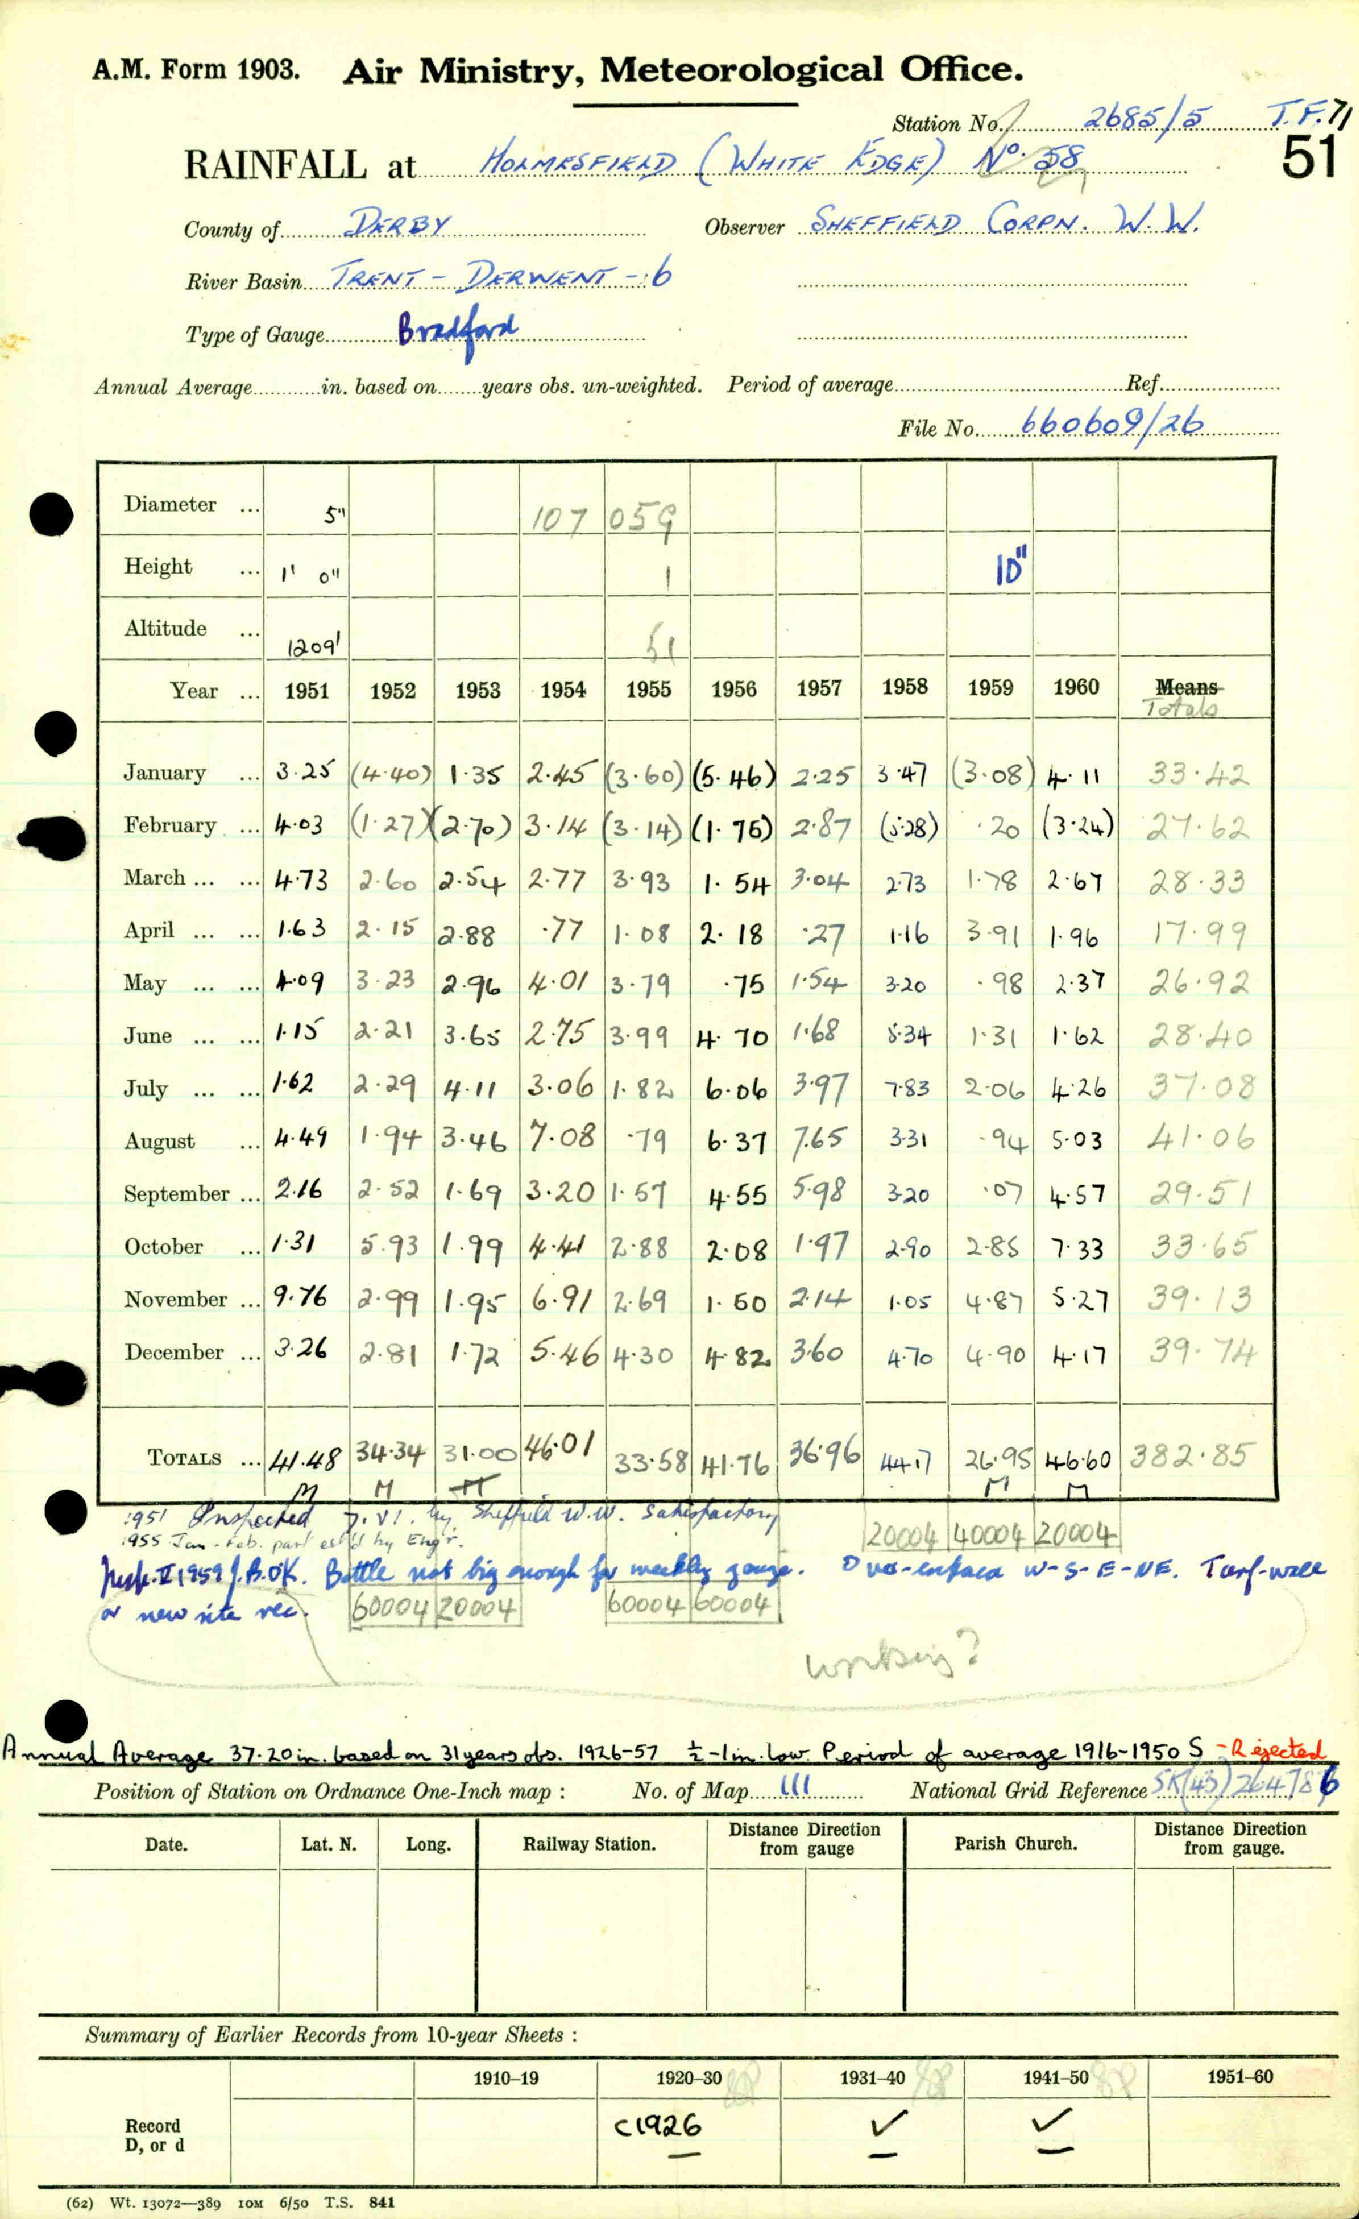 A.M. Form 1903. Air Ministry, Meteorological Office.
Station No. 2685/5 T.F.71
RAINFALL at HOLMESFIELD (WHITE EDGE) No. 58 51
County of DERBY Observer SHEFFIELD CORPN. W.W.
River Basin TRENT - DERWENT - 6
Type of Gauge Bradford
Annual Average in. based on years obs. un-weighted. Period of average Ref.
File No. 660609/26
Diameter ... 5" 107 059
Height ... 1' 0" 1 10"
Altitude ... 1209' 51
Year ... 1951 1952 1953 1954 1955 1956 1957 1958 1959 1960 Means
Totals
January ... 3.25 (4.40) 1.35 2.45 (3.60) (5.46) 2.25 3.47 (3.08) 4.11 33.42
February ... 4.03 (1.27) (2.70) 3.14 (3.14) (1.75) 2.87 (5.28) .20 (3.24) 27.62
March ... ... 4.73 2.60 2.54 2.77 3.93 1.54 3.04 2.73 1.78 2.67 28.33
April ... ... 1.63 2.15 2.88 .77 1.08 2.18 .27 1.16 3.91 1.96 17.99
May ... ... 4.09 3.23 2.96 4.01 3.79 .75 1.54 3.20 .98 2.37 26.92
June ... ... 1.15 2.21 3.65 2.75 3.99 4.70 1.68 5.34 1.31 1.62 28.40
July ... ... 1.62 2.29 4.11 3.06 1.82 6.06 3.97 7.83 2.06 4.26 37.08
August ... 4.49 1.94 3.46 7.08 .79 6.37 7.65 3.31 .94 5.03 41.06
September ... 2.16 2.52 1.69 3.20 1.57 4.55 5.98 3.20 .07 4.57 29.51
October ... 1.31 5.93 1.99 4.41 2.88 2.08 1.97 2.90 2.85 7.33 33.65
November ... 9.76 2.99 1.95 6.91 2.69 1.50 2.14 1.05 4.87 5.27 39.13
December ... 3.26 2.81 1.72 5.46 4.30 4.82 3.60 4.70 4.90 4.17 39.74
TOTALS ... 41.48 34.34 31.00 46.01 33.58 41.76 36.96 44.17 26.95 46.60 382.85
M M M M M
1951 Inspected 7.VI. by Sheffield W.W. Satisfactory
20004 40004 20004
1955 Jan-Feb. part est'd by Engr.
Insp. II 1959 J.B. OK. Bottle not big enough for weekly gauge. Over-exposed W-S-E-NE. Turf-wall
or new site rec. 60004 20004 60004 60004
working?
Annual Average 37.20 in. based on 31 years obs. 1926-57 ½-1 in. low. Period of average 1916-1950 S - Rejected
Position of Station on Ordnance One-Inch map : No. of Map 111 National Grid Reference SK(43) 264786
Date. Lat. N. Long. Railway Station. Distance Direction from gauge Parish Church. Distance Direction from gauge.
Summary of Earlier Records from 10-year Sheets :
1910–19 1920–30 1931–40 1941–50 1951–60
Record
D, or d
c1926 ✓ ✓
(62) Wt. 13072—389 10M 6/50 T.S. 841